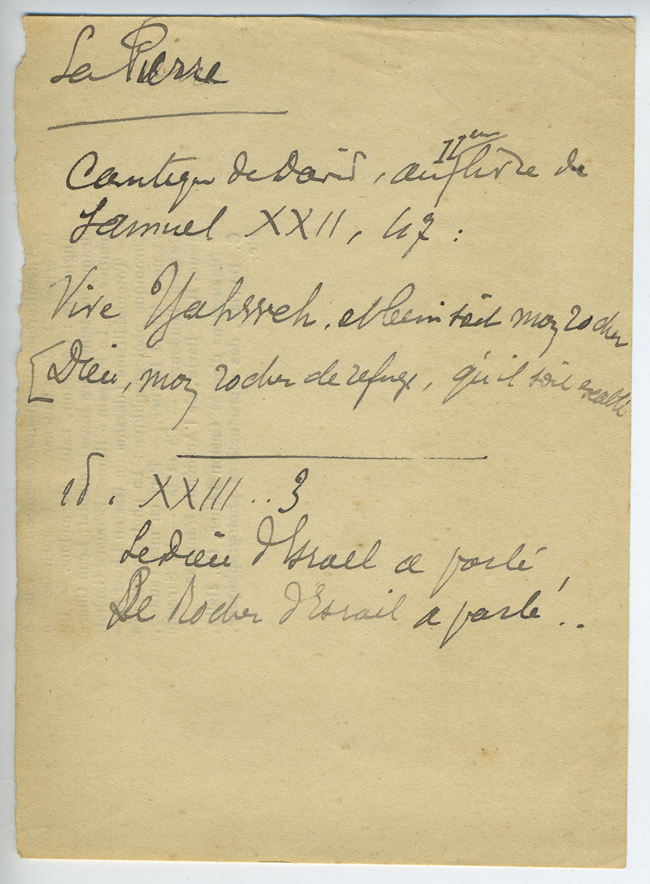 La Pierre
Cantique de David, au IIem livre de
Samuel XXII, 47 :
Vive Yahweh, et béni soit mon rocher
[Dieu, mon rocher de refuge, qu'il soit exalté
id. XXIII .. 3
Le Dieu d'Israel a parlé,
Le Rocher d'Israël a parlé..